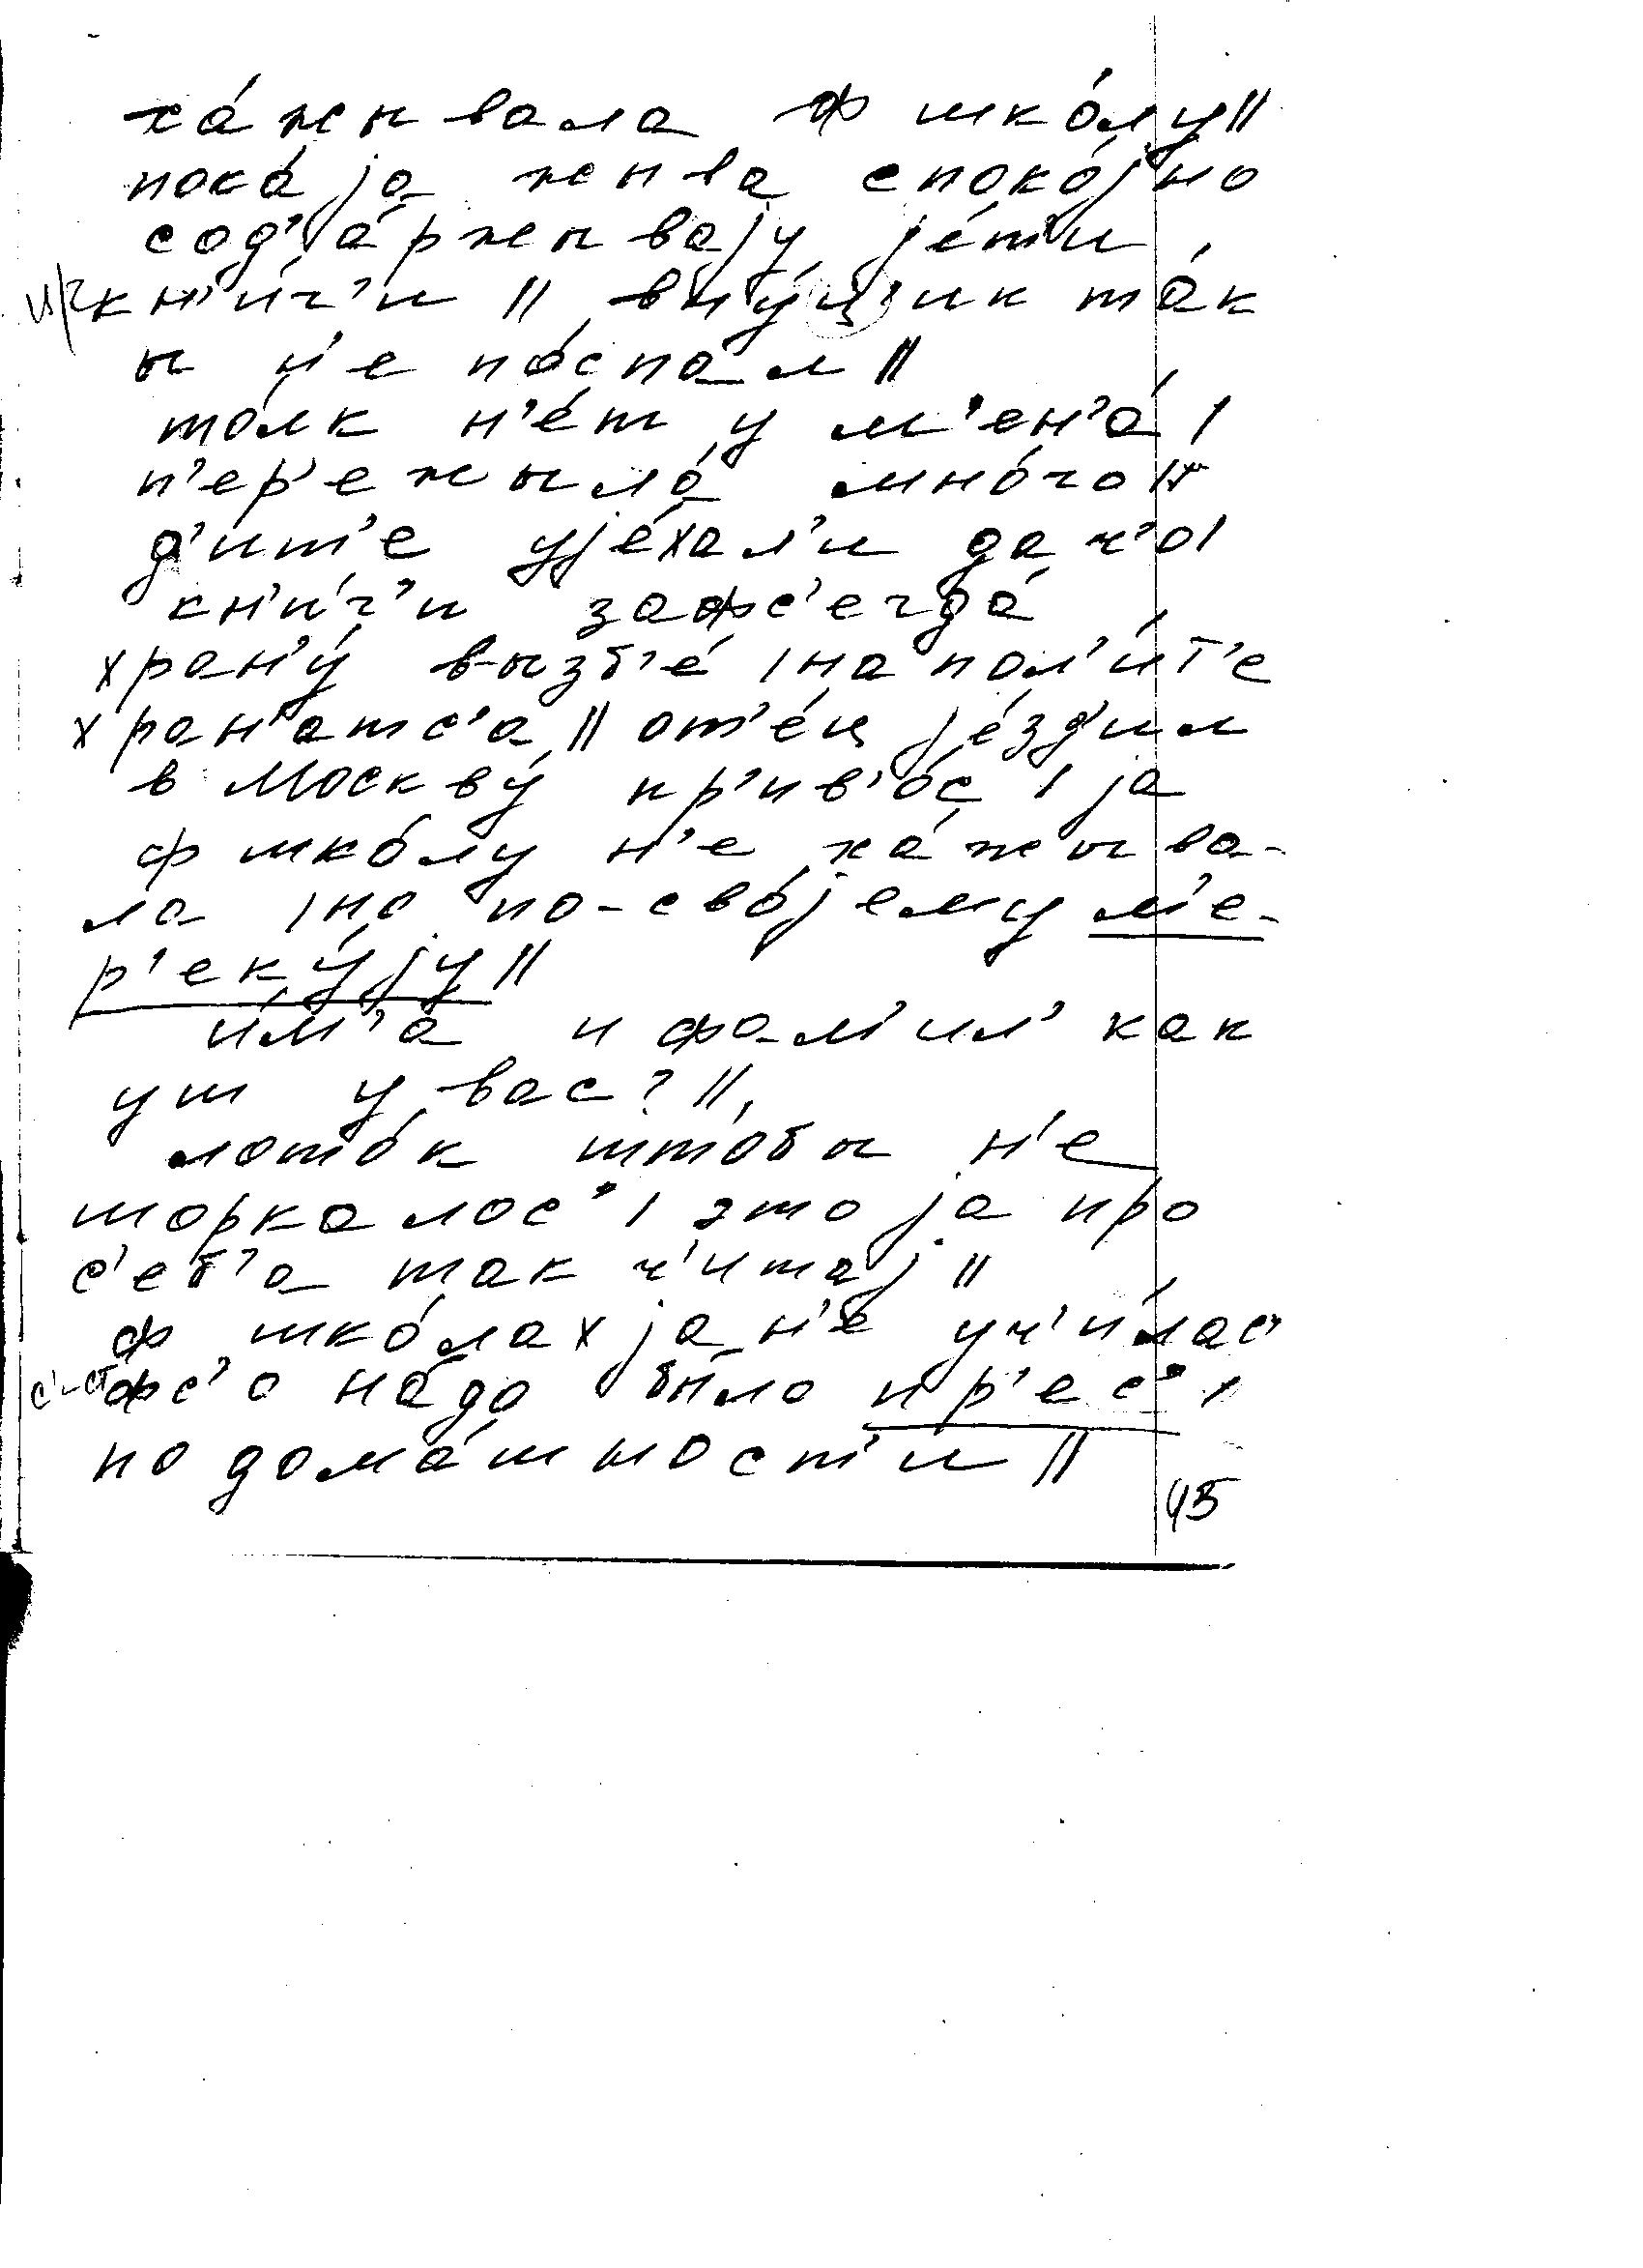 ха́жывала ф шко́лу ||
пока́ jа жыва споко́jно
сод'а́ржываjу jе́т'и
кн'и́г'и || вну́ц'ик та́к
ы н'е по́спал ||
толк н'е́т у м'ен'а́ |
п'ер'ежыла́ мно́го ||
д'ит'е уjе́хал'и да ч'о |
кн'и́г'и зафс'егда́
хран'у́ в ызб'е́ | на пол'и́т'е
хран'атс'а || от'е́ц jе́зд'ил
в Москву́ пр'ив'о́с | jа
ф шко́лу н'е ха́жыва-
ла | но по-сво́jему м'е-
р'еку́jу ||
и́м'а и фам'ил' как
уш у вас? ||
лото́к што́бы н'е
шоркалос' | это jа про
с'еб'а так ч'итаj ||
ф шко́лах jа н'е уч'и́лас'
фс'о на́до бы́ло пр'ес' |
по дома́шност'и ||
45